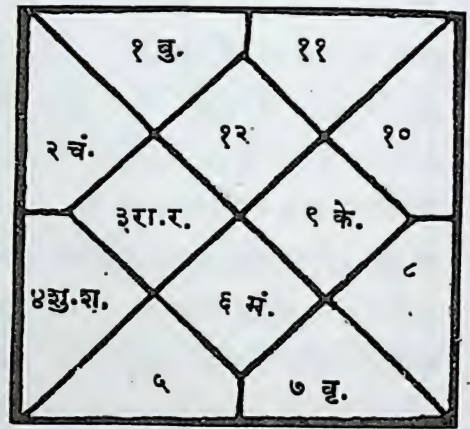 १ बु.
११
२ चं.
१२
१०
३रा.र.
९ के.
४शु.श.
६ मं.
८
५
७ वृ.